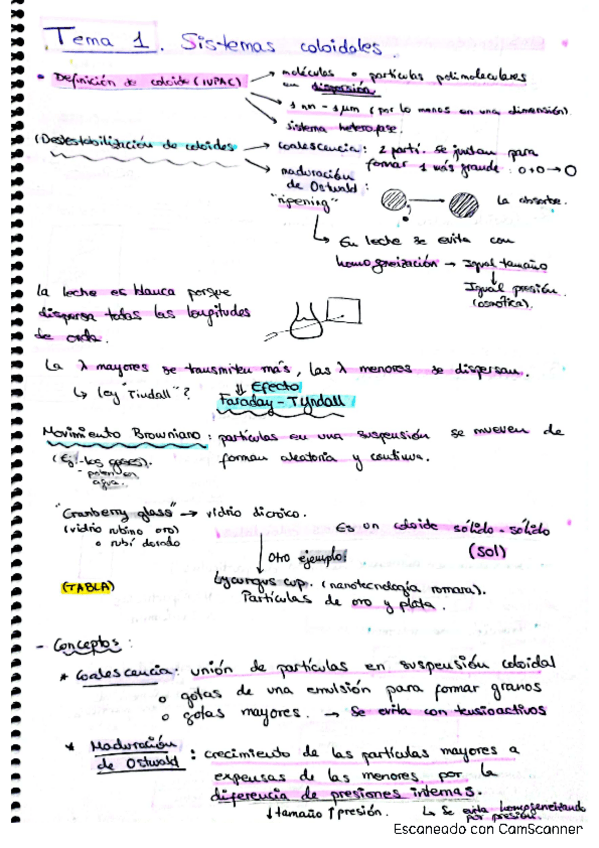 Tema 1. Sistemas coloidales.
• Definición de coloide (IUPAC) → moléculas o partículas polimoleculares
en dispersión
→ 1 nm - 1 µm (por lo menos en una dimensión)
→ sistema heterofase.
(Desestabilización de coloides → coalescencia: 2 partí. se juntan para
formar 1 más grande: o+o→O
→ maduración
de Ostwald:
"ripening"
la absorbe.
↳ En leche se evita con
homogeneización → Igual tamaño
↓
Igual presión.
(osmótica).
La leche es blanca porque
dispersa todas las longitudes
de onda.
La λ mayores se transmiten más, las λ menores se dispersan.
↳ ley "Tindall"?
⇓ Efecto
Faraday - Tyndall
Movimiento Browniano: partículas en una suspensión se mueven de
forman aleatoria y continua.
(Ej: -los gases).
- polen en
agua.
"Cranberry glass" → vidrio dicroico.
(vidrio rubino oro)
o rubí dorado
Es un coloide sólido - sólido
(sol)
↓ Otro ejemplo:
Lycurgus cup. (nanotecnología romana).
Partículas de oro y plata.
(TABLA)
- Conceptos:
* Coalescencia: unión de partículas en suspensión coloidal
o gotas de una emulsión para formar granos
o gotas mayores. → Se evita con tensioactivos
* Maduración
de Ostwald: crecimiento de las partículas mayores a
expensas de las menores por la
diferencia de presiones internas.
↓tamaño ↑presión.
↳ Se evita homogeneizando
por presión.
Escaneado con CamScanner